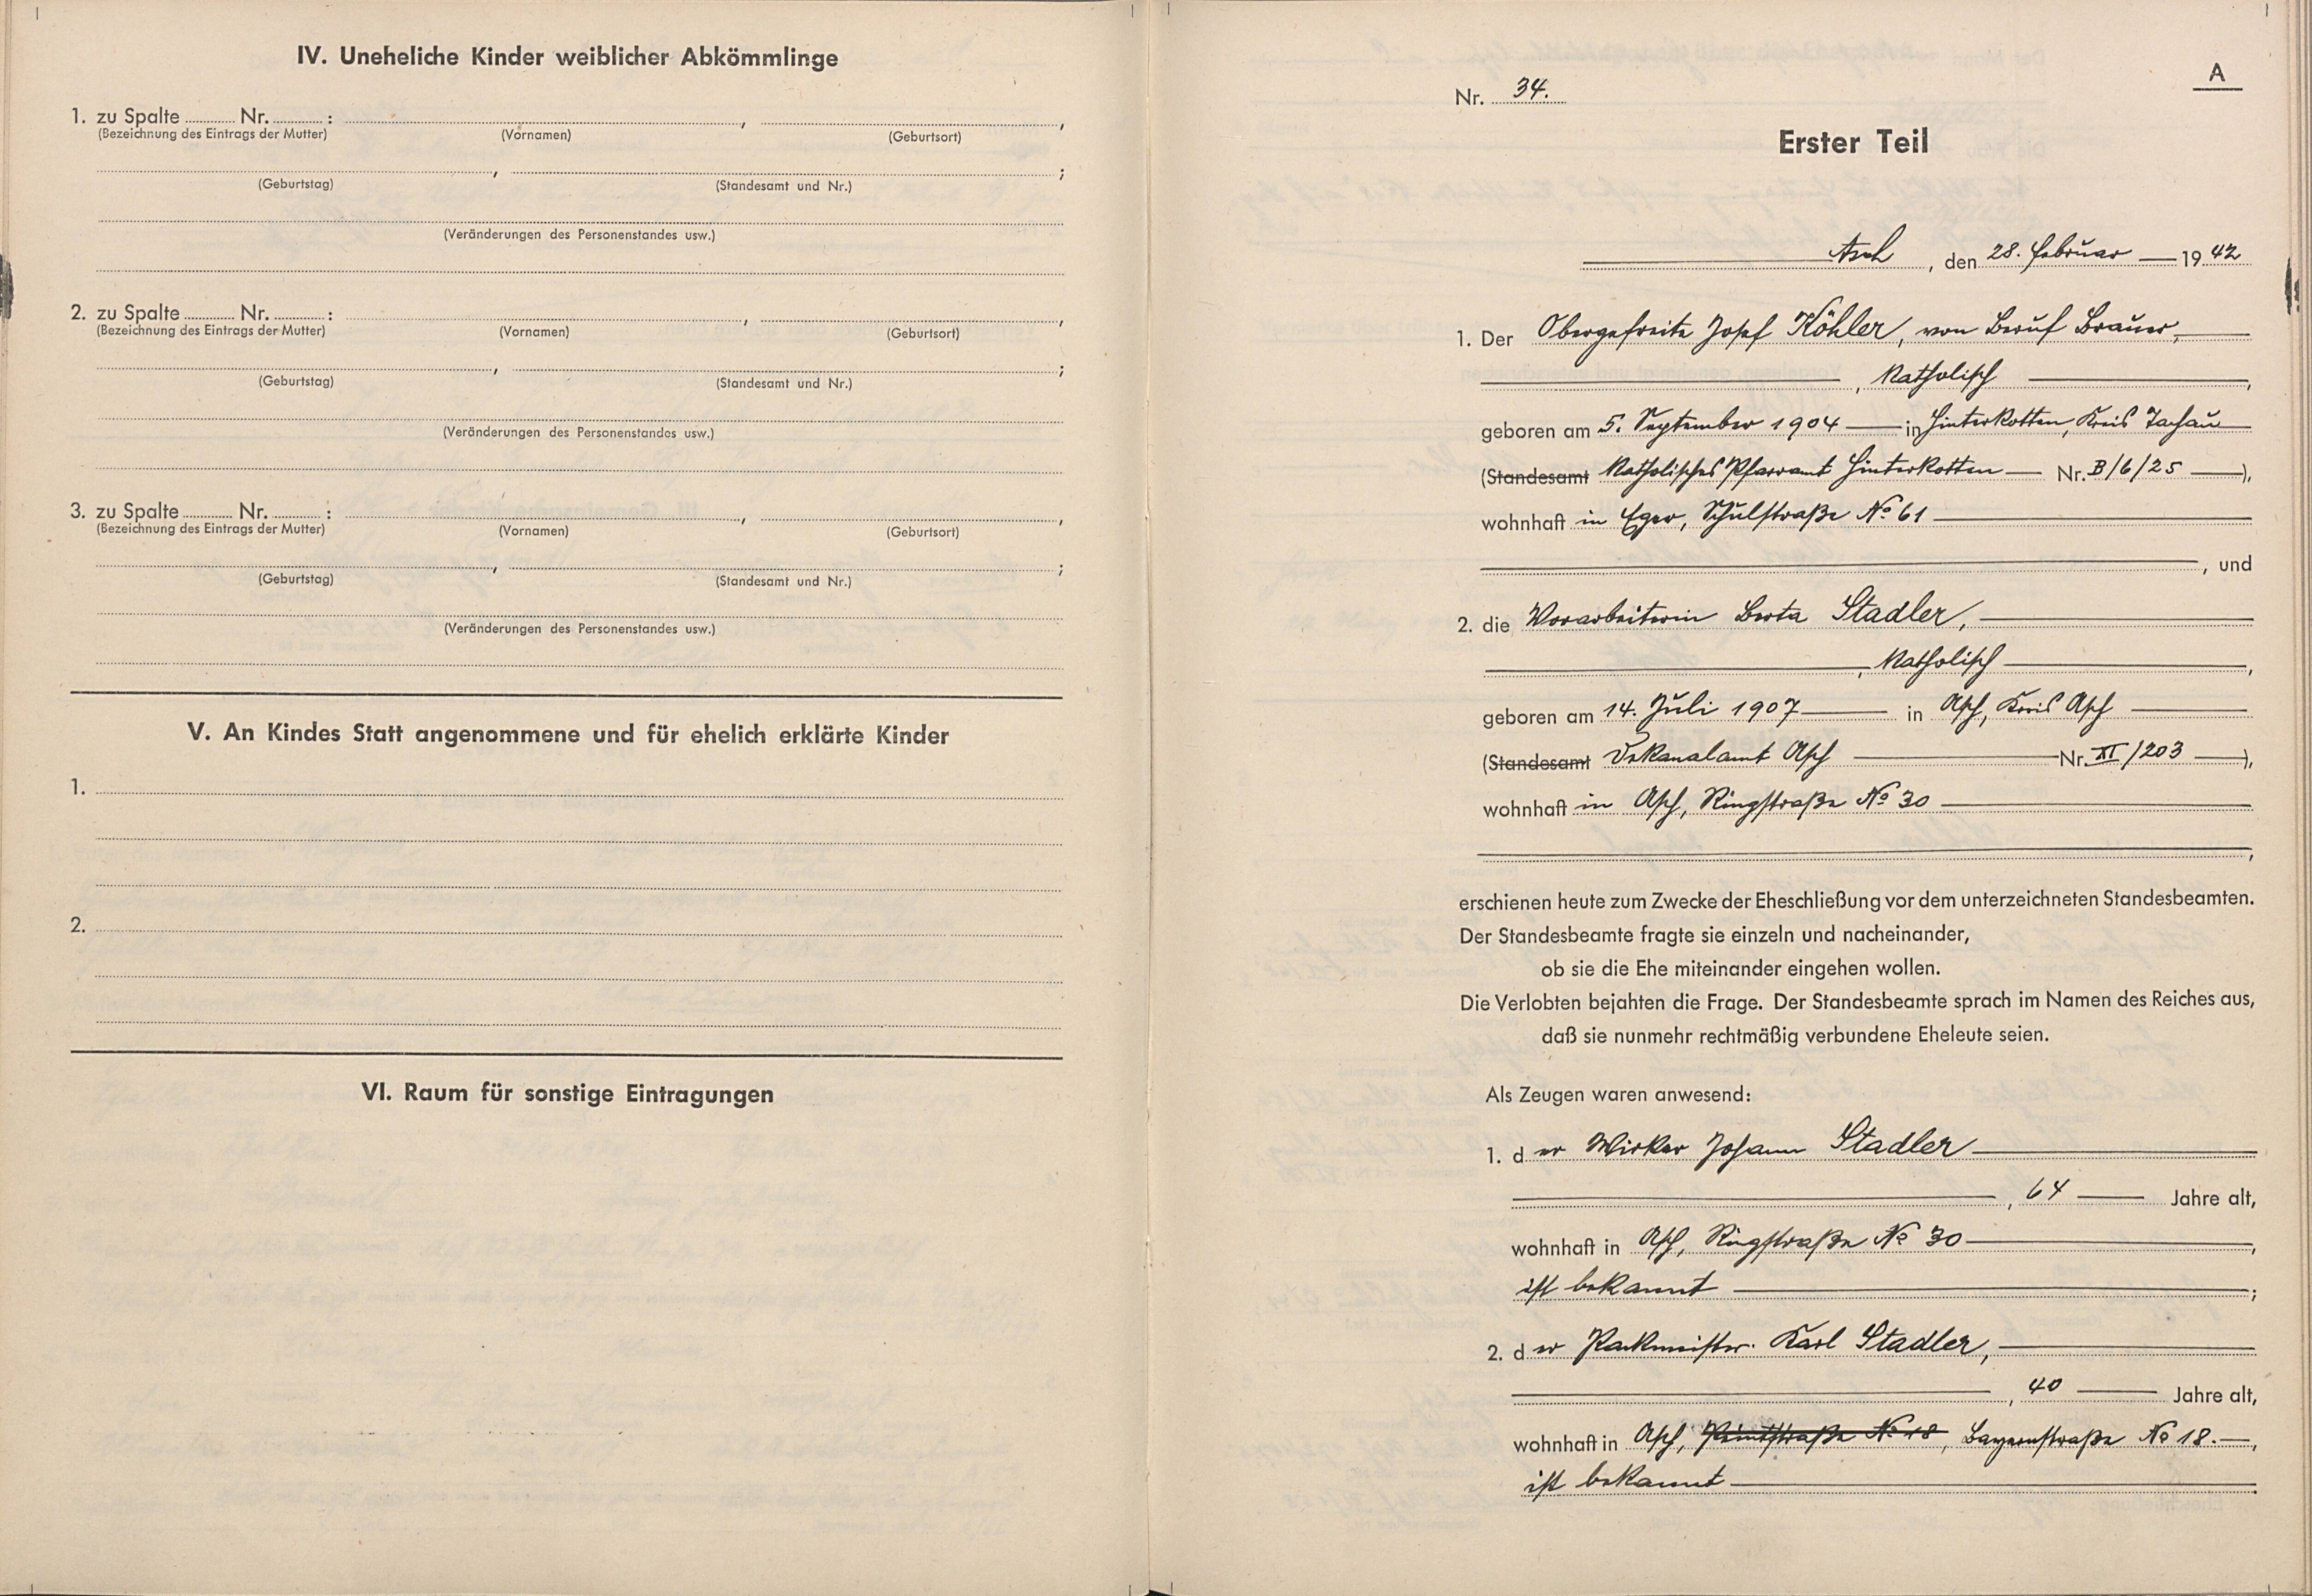 IV. Uneheliche Kinder weiblicher Abkömmlinge
1. zu Spalte ........ Nr. ........ : ........ , ........ ,
(Bezeichnung des Eintrags der Mutter) (Vornamen) (Geburtsort)
........ , ........ ;
(Geburtstag) (Standesamt und Nr.)
(Veränderungen des Personenstandes usw.)
2. zu Spalte ........ Nr. ........ : ........ , ........ ,
(Bezeichnung des Eintrags der Mutter) (Vornamen) (Geburtsort)
........ , ........ ;
(Geburtstag) (Standesamt und Nr.)
(Veränderungen des Personenstandes usw.)
3. zu Spalte ........ Nr. ........ : ........ , ........ ,
(Bezeichnung des Eintrags der Mutter) (Vornamen) (Geburtsort)
........ , ........ ;
(Geburtstag) (Standesamt und Nr.)
(Veränderungen des Personenstandes usw.)
V. An Kindes Statt angenommene und für ehelich erklärte Kinder
1.
2.
VI. Raum für sonstige Eintragungen
A
Nr. 34.
Erster Teil
Asch, den 28. Februar 1942
1. Der Obergefreite Josef Köhler, von Beruf Brauer,
, katholisch ,
geboren am 5. September 1904 in Hinterkotten, Kreis Tachau
(Standesamt Katholisches Pfarramt Hinterkotten Nr. B/6/25 ),
wohnhaft in Eger, Schulstraße No 61
, und
2. die Vorarbeiterin Berta Stadler,
, katholisch ,
geboren am 14. Juli 1907 in Asch, Kreis Asch
(Standesamt Dekanalamt Asch Nr. XI/203 ),
wohnhaft in Asch, Ringstraße No 30
,
erschienen heute zum Zwecke der Eheschließung vor dem unterzeichneten Standesbeamten.
Der Standesbeamte fragte sie einzeln und nacheinander,
ob sie die Ehe miteinander eingehen wollen.
Die Verlobten bejahten die Frage. Der Standesbeamte sprach im Namen des Reiches aus,
daß sie nunmehr rechtmäßig verbundene Eheleute seien.
Als Zeugen waren anwesend:
1. der Wirker Johann Stadler
, 64 Jahre alt,
wohnhaft in Asch, Ringstraße No 30 ,
ist bekannt ;
2. der Packmeister Karl Stadler,
, 40 Jahre alt,
wohnhaft in Asch, No 18, Bayernstraße No 18. ,
ist bekannt .